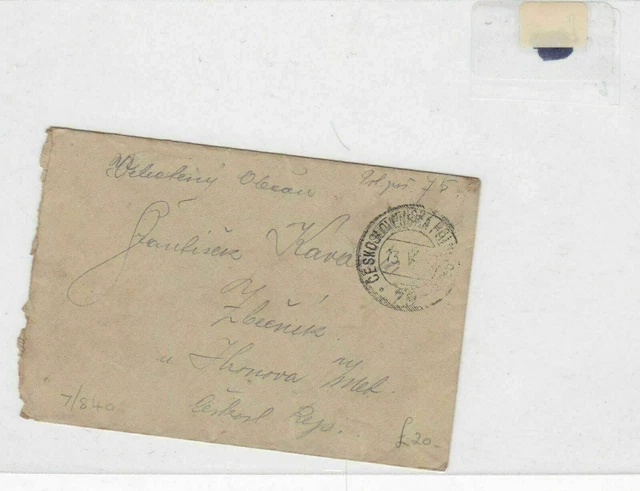 Velectěný Občan Pol. poš 75.
František Kava
ČESKOSLOVENSKÁ POLNÍ
13 V
75
v
Zbečník
u Hronova n/Met.
Českosl Rep.
7/840
£20-